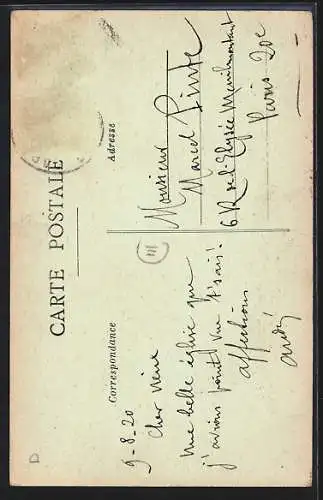 CARTE POSTALE
Correspondance
Adresse
9-8-20
Cher
une belle église que
j'avions point vue t'sais!
affections
André
Monsieur
Marcel
6 R de l'Elysée Menilmontant
Paris 20e
m
D